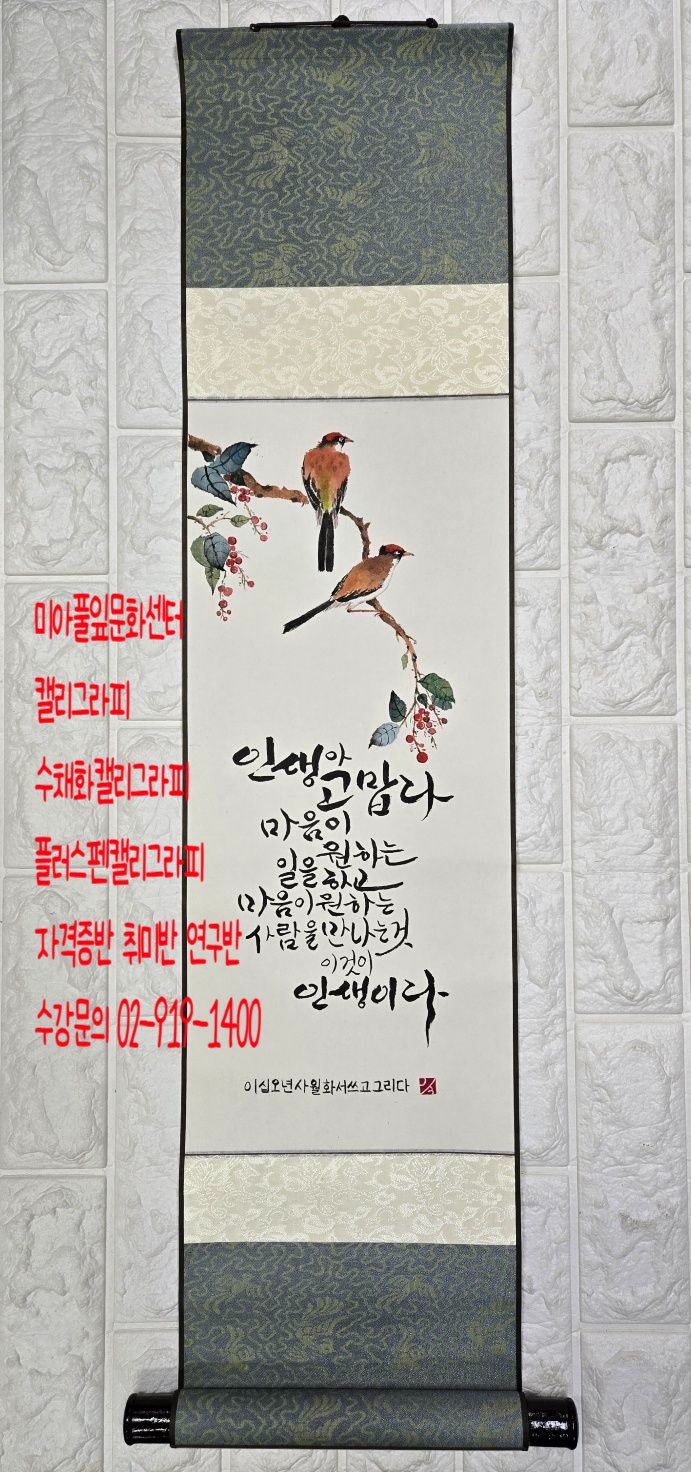 미아풀잎문화센터
캘리그라피
수채화캘리그라피
플러스펜캘리그라피
자격증반 취미반 연구반
수강문의 02-919-1400
인생아
고맙다
마음이
원하는
일을 하고
마음이 원하는
사람을 만나는것
이것이
인생이다
이십오년사월화서쓰고그리다